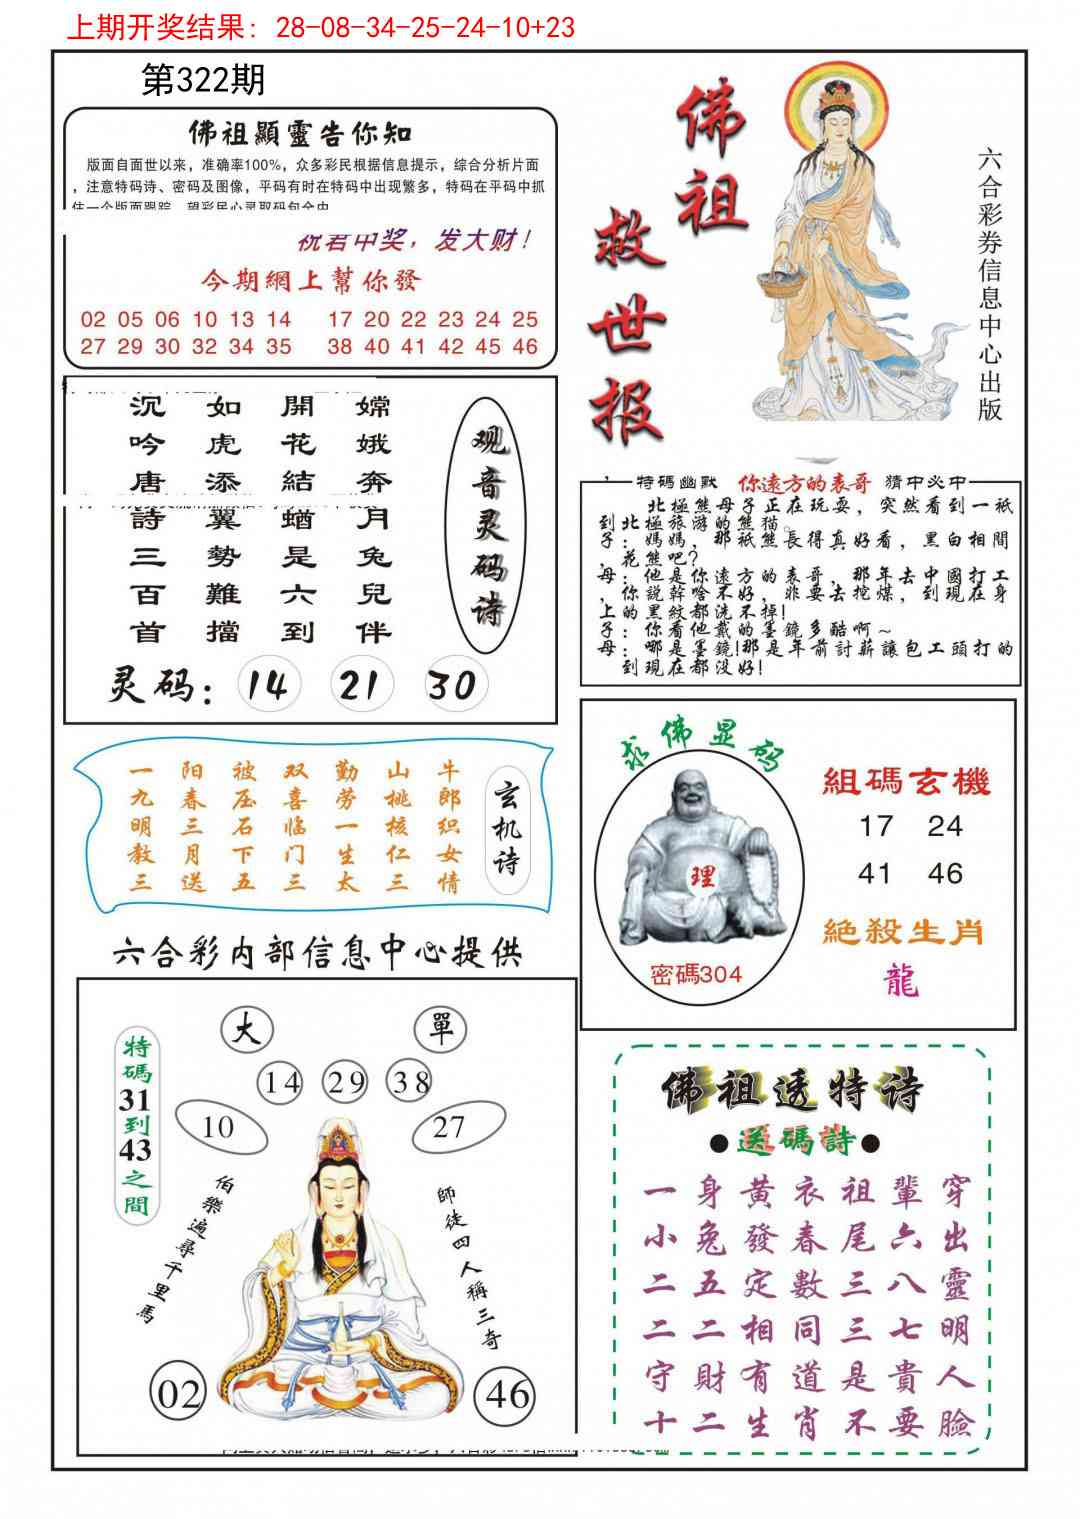 上期开奖结果：28-08-34-25-24-10+23
第322期
佛祖顯靈告你知
版面自面世以来，准确率100%，众多彩民根据信息提示，综合分析片面
，注意特码诗、密码及图像，平码有时在特码中出现繁多，特码在平码中抓
住一个版面跟踪，望彩民心灵取码包全中
祝君中奖，发大财！
今期網上幫你發
02 05 06 10 13 14 17 20 22 23 24 25
27 29 30 32 34 35 38 40 41 42 45 46
佛祖
救世报
六合彩券信息中心出版
观音灵码诗
嫦娥奔月兔兒伴
開花結蝤是六到
如虎添翼勢難擋
沉吟唐詩三百首
灵码：14 21 30
特碼幽默 你遠方的表哥 猜中必中
北極熊母子正在玩耍，突然看到一衹
到北極旅游的熊猫。
子：媽媽，那衹熊長得真好看，黑白相間
，花熊吧？
母：他是你遠方的表哥，那年去中國打工
，你説幹啥不好，非要去挖煤，到現在身
上的黑紋都洗不掉！
子：你看他戴的墨鏡多酷啊～
母：哪是墨鏡！那是年前討薪讓包工頭打的
到現在都没好！
玄机诗
牛郎织女情
山桃核仁三
勤劳一生太
双喜临门三
彼压石下五
阳春三月送
一九明教三
求佛显码
理
密碼304
組碼玄機
17 24
41 46
絶殺生肖
龍
六合彩内部信息中心提供
特碼31到43之間
大 單
14 29 38
10 27
伯樂遍尋千里馬
師徒四人稱三奇
02 46
佛祖透特诗
●送碼詩●
一身黃衣祖輩穿
小兔發春尾六出
二五定數三八靈
二二相同三七明
守財有道是貴人
十二生肖不要臉